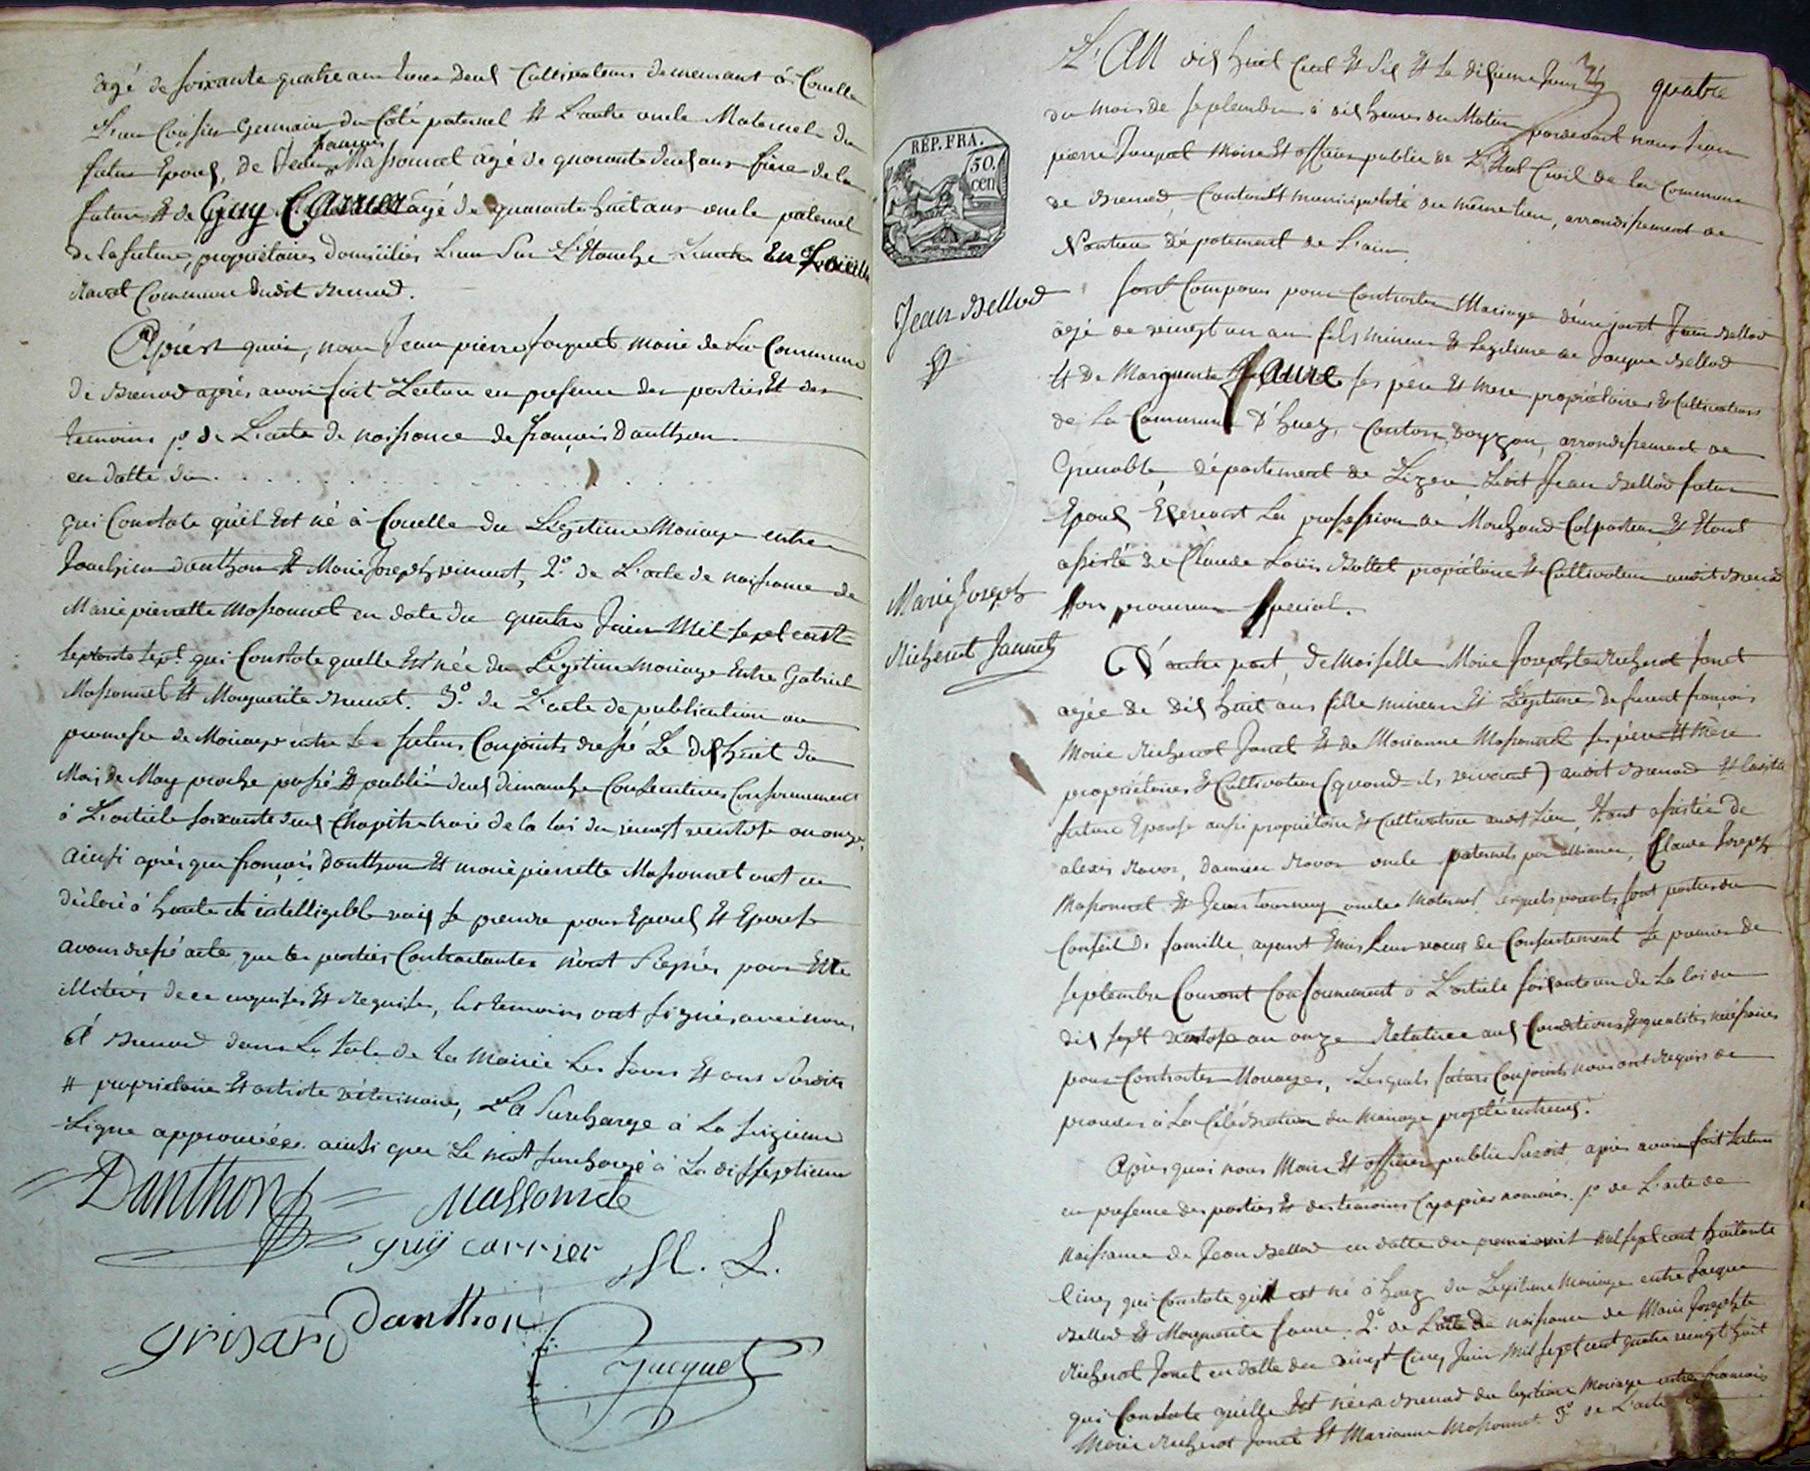 agé de soixante quatre ans tous deux Cultivateurs demeurant à Corcelle
L'un Cousin Germain du Côté paternel et L'autre oncle Maternel du
françois
futur Epoux, de Jean Massonnet âgé de quarante deux ans frère de la
future et de Guy Carrier agé de quarante huit ans oncle paternel
de la future, propriétaires domiciliés L'un Sur L'Etanche L'autre En
Commune dudit Brenod.
Après quoi, nous Jean pierre Jacquet maire de La Commune
de Brenod après avoir fait Lecture en presence des parties Et des
temoins 1º de L'acte de naissance de françois Danthon
en datte du . . . . . . . . . .
qui Constate qu'il Est né à Corcelle du Legitime Mariage entre
Joachim danthon et Marie Joseph vincent, 2º de L'acte de naissance de
Marie pierrette Massonnet en date du quatre Juin Mil sept cent
septante sept qui Constate quelle Est née du Legitime mariage Entre Gabriel
Massonnet et Marguerite Brunet. 3º de L'acte de publication ou
promesse de Mariage entre les futurs Conjoints dressé Le dix huit du
Mois de May proche passé et publié deux dimanche Consecutives Conformement
à L'article soixante deux Chapitre trois de la loi du vingt ventose an onze,
ainsi après que françois Danthon et marie pierrette Massonnet ont eu
déclaré à haute et intelligible voix se prendre pour Epoux et Epouse
avons dressé acte que les parties Contractantes n'ont Signés pour Etre
illiterés de ce enquises et Requises, les temoins ont signés avec nous,
A Brenod dans La Sale de La Mairie Les Jours et ans Susdits
# proprietaire et artiste véterinaire, La Surcharge à La sixieme
Ligne approuvées ainsi que Le mot surchargé à La dixseptieme
Danthon Massonnet
guÿ carrier M. L.
grisard Danthon
Jacquet
L'An dix huit Cent et Six et Le dixieme Jour quatre
du mois de septembre à dix heures du Matin pardevant nous Jean
REP. FRA.
50. cen
pierre Jacquet Maire et officier public de L'Etat Civil de la Commune
de Brenod, Canton et municipalité du même lieu, arrondissement de
Nantua département de L'ain
Jean Bellod
sont Comparus pour Contracter Mariage d'une part Jean Bellod
âgé de vingt un an fils mineur et legitime de Jacque Bellod
et De Marguerite faure ses père et mere propriétaires et Cultivateurs
de La Commune d'huez, Canton Doyzan, arrondissement de
Grenoble, département de Lizere Ledit Jean Bellod futur
Epoux Exercant La profession de Marchand Colporteur et Etant
assisté de Claude Louis Bollet propriétaire et Cultivateur audit Brenod
son procureur special.
Marie Joseph
Richerot Jannet
Et d'autre part, deMoiselle Marie Josephte Richerot Janet
agée de dix huit ans fille mineure et Legitime de furent françois
Marie Richerot Janet et de Marianne Massonnet ses père et mère
propriétaires et Cultivateurs (quand ils vivoient) audit Brenod et laditte
future Epouse aussi propriétaire et Cultivatrice audit Lieu, Etant assistée de
alexis Ravoz, Damien Ravoz oncle paternels par alliance, Claude Joseph
Massonnet et Jean tournay oncles Maternel lesquels parents sont parties du
Conseil de famille ayant Emis Leur voeux de Consentement le premier de
septembre Courant Conformement à L'article soixante un de La loi du
dix sept ventose an onze Relative aux Conditions et qualités nécessaires
pour Contracter Mariages, Lesquels futurs Conjoints nous ont requis de
proceder à La Célébration du mariage projetté entreux.
Après quoi nous Maire et officier public Susdit après avoir fait lecture
en presence des parties et des temoins Cy après nommés. 1º de L'acte de
naissance de Jean Bellod en datte du premier mil sept cent huitante
Cinq qui Constate qu'il est né à huez du Legitime Mariage entre Jacque
Bellod et Marguerite faure. 2º de L'acte de naissance de Marie Josephte
Richerot Janet en datte du vingt Cinq Juin mil sept cent quatre vingt huit
qui Constate qu'elle Est née à Brenod du legitime Mariage entre françois
Marie Richerot Janet et Marianne Massonnet 3º de L'acte de